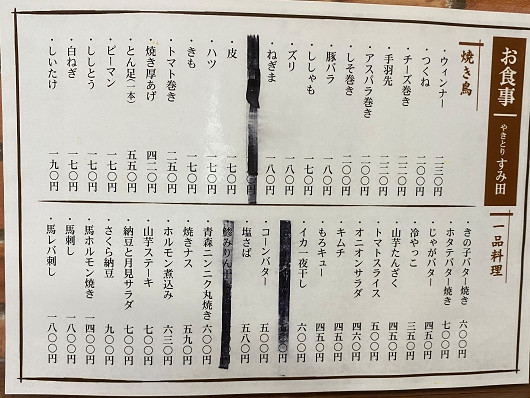 お食事 やきとり すみ田
焼き鳥
・ウィンナー 二三〇円
・つくね 二〇〇円
・チーズ巻き 二二〇円
・手羽先 二二〇円
・アスパラ巻き 二〇〇円
・しそ巻き 二〇〇円
・豚バラ 一八〇円
・ししゃも 一七〇円
・ズリ 一八〇円
・ねぎま 一八〇円
・皮 一七〇円
・ハツ 一七〇円
・きも 一七〇円
・トマト巻き 二五〇円
・焼き厚あげ 四二〇円
・とん足(一本) 五五〇円
・ピーマン 一七〇円
・ししとう 一七〇円
・白ねぎ 一七〇円
・しいたけ 一九〇円
一品料理
・きの子バター焼き 六〇〇円
・ホタテバター焼き 七〇〇円
・じゃがバター 四五〇円
・冷やっこ 三五〇円
・山芋たんざく 四五〇円
・トマトスライス 五〇〇円
・オニオンサラダ 四六〇円
・キムチ 四五〇円
・もろキュー 四五〇円
・イカ一夜干し 六〇〇円
・コーンバター 五〇〇円
・塩さば 五八〇円
・青森ニンニク丸焼き 六〇〇円
・焼きナス 五九〇円
・ホルモン煮込み 六三〇円
・山芋ステーキ 七〇〇円
・納豆と月見サラダ 七〇〇円
・さくら納豆 九〇〇円
・馬ホルモン焼き 一四〇〇円
・馬刺し 一八〇〇円
・馬レバ刺し 一八〇〇円